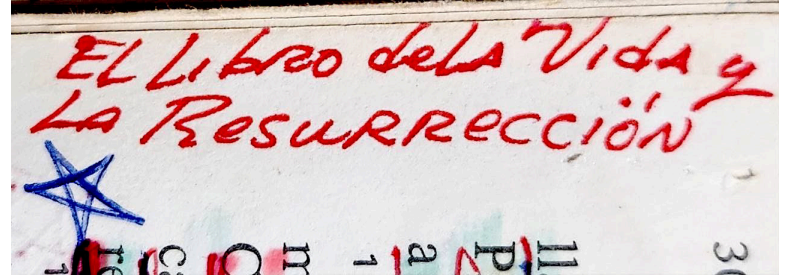 El Libro dela Vida y
La Resurrección